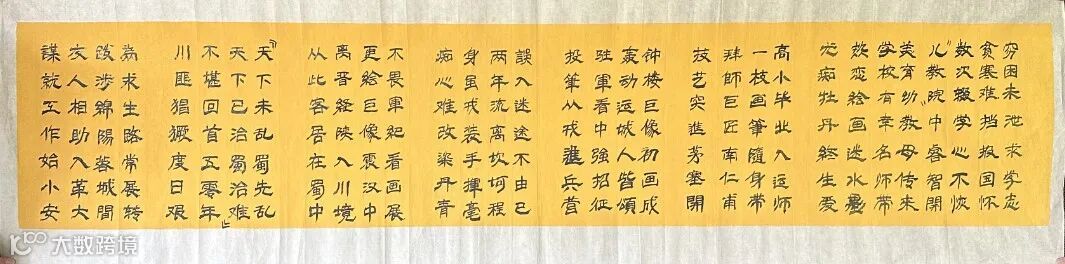 穷困未泄求学志
贫寒难挡报国怀
数次辍学心不恢
“儿教院”中睿智開
美育幼教母传来
学校有幸名师带
恋绘画迷水墨
心痴牡丹終生爱
高小毕业入运师
一枝画筆隨身带
拜師巨匠南仁甫
技艺突進茅塞開
钟楼巨像初画成
轰动运城人皆頌
驻軍看中强招征
投筆从戎進兵营
誤入迷途不由己
两年流离坎坷程
身虽戎装手揮毫
痴心难改染丹青
不畏軍纪看画展
更绘巨像震汉中
离晋經陕入川境
从此客居在蜀中
“天下未乱蜀先乱
天下已治蜀治难”
不堪回首五零年
川匪猖獗度日艰
為求生路常展转
跋涉綿陽蓉城間
友人相助入革大
謀就工作始小安
大数跨境